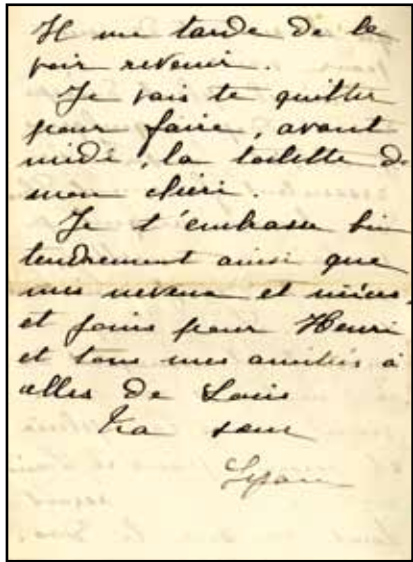 Il me tarde de le
voir revenir.
Je vais te quitter
pour faire, avant
midi, la toilette de
mon chéri.
Je t'embrasse bien
tendrement ainsi que
mes neveux et nièces
et joins pour Henri
et tous mes amitiés à
celles de Louis
Ta sœur